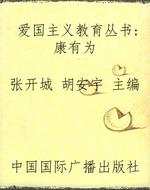 爱国主义教育丛书：
康有为
张开城 胡安宇 主编
中国国际广播出版社